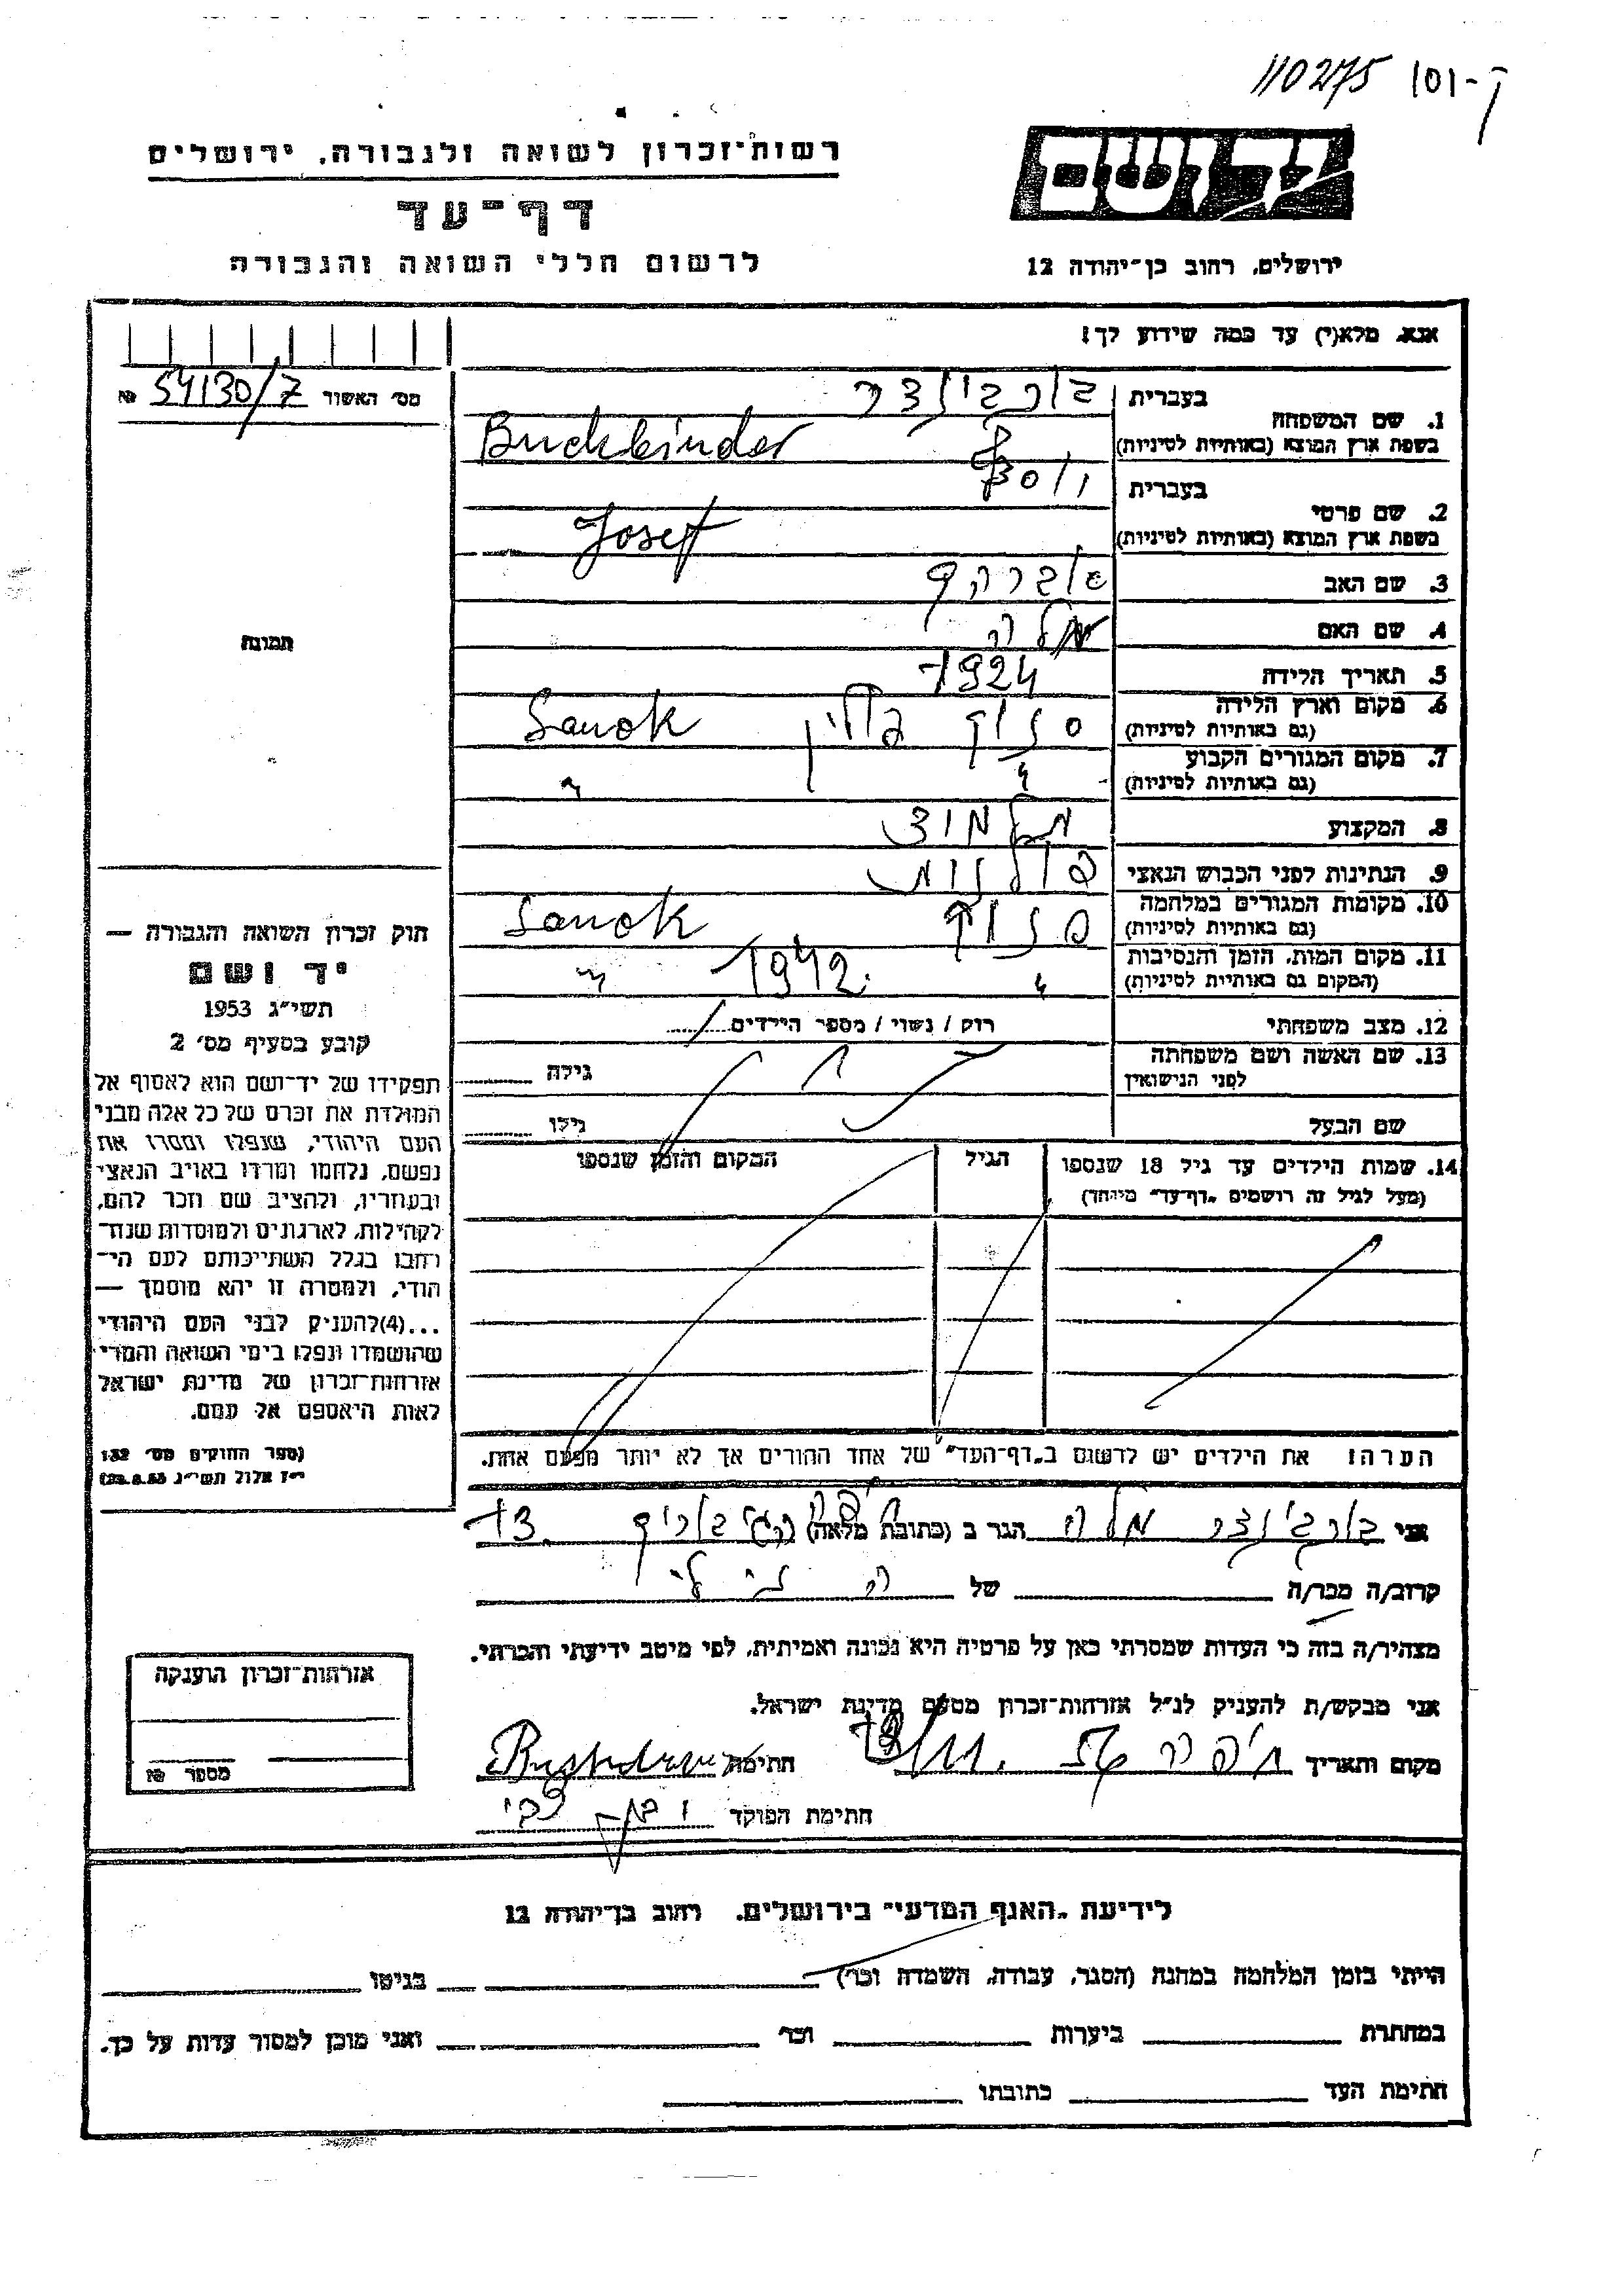 110275 101-ך
רשות־זכרון לשואה ולגבורה. ירושלים
דף־עד
לרשום חללי השואה והגבורה
יד ושם
ירושלים, רחוב בן־יהודה 12
אנא, מלא(י) עד כמה שידוע לך!
מס׳ האשור 54130/7 №
תמונה
1. שם המשפחה
בעברית בוכבינדר
בשפת ארץ המוצא (באותיות לטיניות) Buchbinder
2. שם פרטי
בעברית יוסף
בשפת ארץ המוצא (באותיות לטיניות) Josef
3. שם האב אברהם
4. שם האם
5. תאריך הלידה 1924
6. מקום וארץ הלידה סנוק פולין Sanok
(גם באותיות לטיניות)
7. מקום המגורים הקבוע " "
(גם באותיות לטיניות)
8. המקצוע תלמיד
9. הנתינות לפני הכבוש הנאצי פולנית
10. מקומות המגורים במלחמה סנוק Sanok
(גם באותיות לטיניות)
11. מקום המות, הזמן והנסיבות " 1942. "
(המקום גם באותיות לטיניות)
12. מצב משפחתי רוק / נשוי / מספר הילדים
13. שם האשה ושם משפחתה
לפני הנישואין
גילה
שם הבעל גילו
14. שמות הילדים עד גיל 18 שנספו הגיל המקום והזמן שנספו
(מעל לגיל זה רושמים „דף־עד” מיוחד)
הערה: את הילדים יש לרשום ב„דף־העד” של אחד ההורים אך לא יותר מפעם אחת.
חוק זכרון השואה והגבורה —
יד ושם
תשי״ג 1953
קובע בסעיף מס׳ 2
תפקידו של יד־ושם הוא לאסוף אל
המולדת את זכרם של כל אלה מבני
העם היהודי, שנפלו ומסרו את
נפשם, נלחמו ומרדו באויב הנאצי
ובעוזריו, ולהציב שם וזכר להם,
לקהילות, לארגונים ולמוסדות שנח־
רבו בגלל השתייכותם לעם הי־
הודי, ולמטרה זו יהא מוסמך —
...(4)להעניק לבני העם היהודי
שהושמדו ונפלו בימי השואה והמרי
אזרחות־זכרון של מדינת ישראל
לאות היאספם אל עמם.
(ספר החוקים מס׳ 132
י״ז אלול תשי״ג 28.8.53)
אני בוכבינדר הגר ב (כתובת מלאה) 13
קרוב/ה מכר/ה של
מצהיר/ה בזה כי העדות שמסרתי כאן על פרטיה היא נכונה ואמיתית, לפי מיטב ידיעתי והכרתי.
אני מבקש/ת להעניק לנ״ל אזרחות־זכרון מטעם מדינת ישראל.
מקום ותאריך חיפה חתימה
חתימת הפוקד
אזרחות־זכרון הוענקה
מספר №
לידיעת „האגף המדעי” בירושלים, רחוב בן־יהודה 12
הייתי בזמן המלחמה במחנה (הסגר, עבודה, השמדה וכו׳) בגיטו
במחתרת ביערות וכו׳ ואני מוכן למסור עדות על כך.
חתימת העד כתובתו